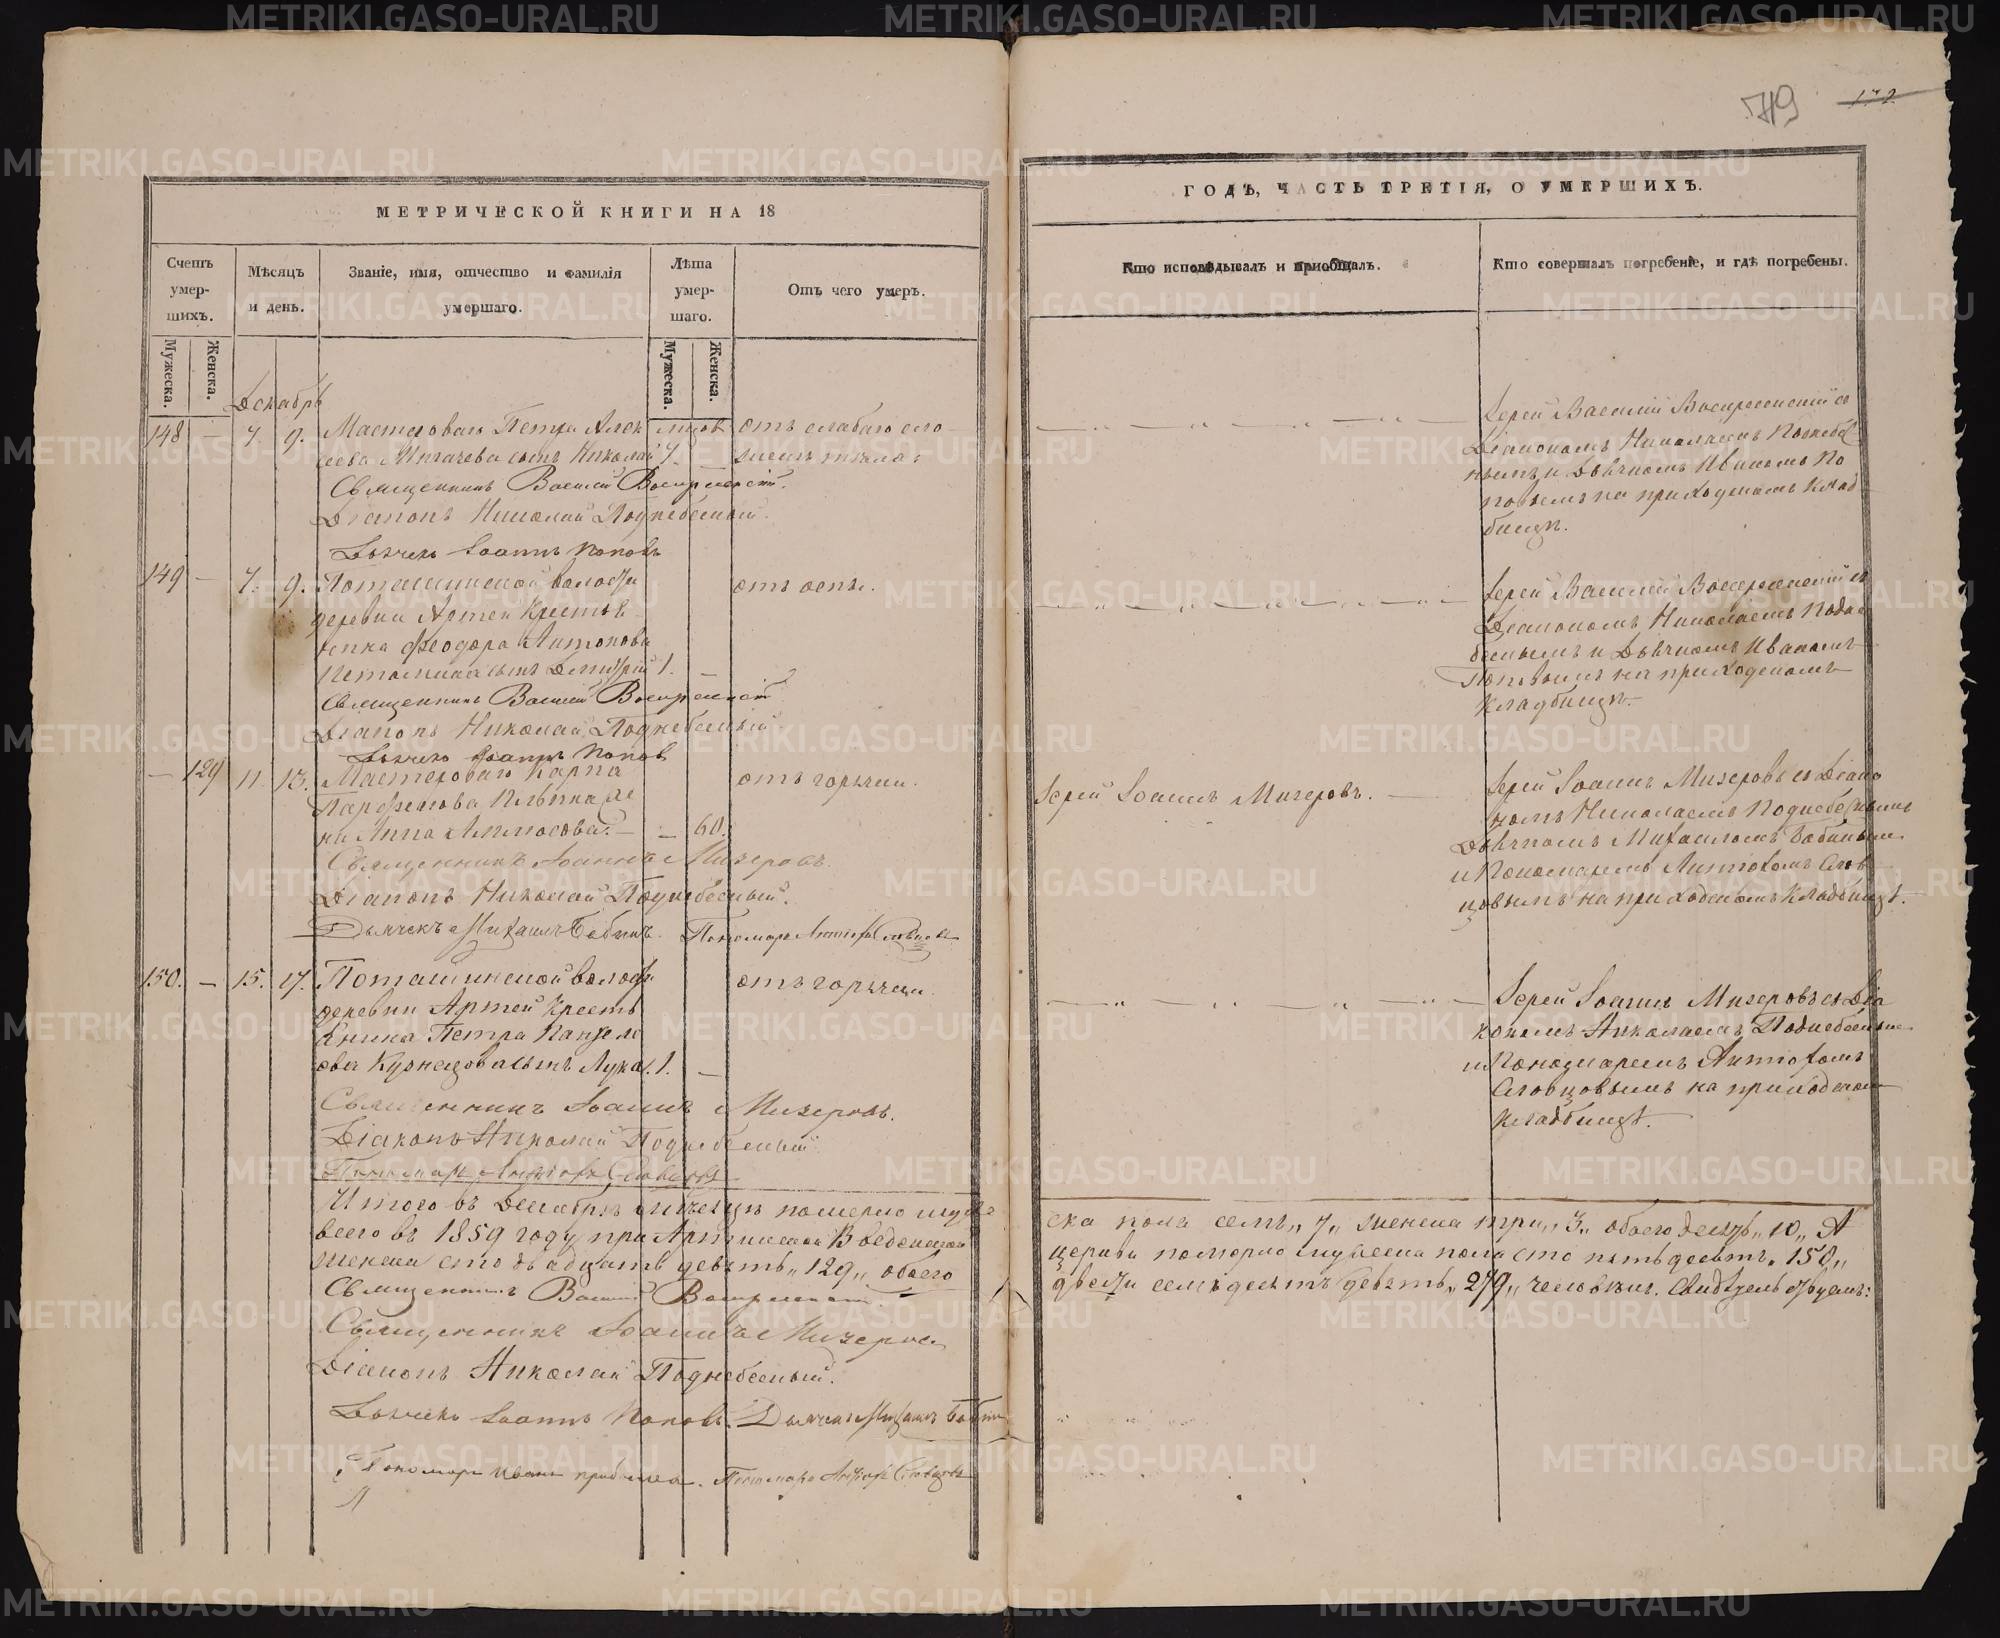 149 172
МЕТРИЧЕСКОЙ КНИГИ НА 18
ГОДЪ, ЧАСТЬ ТРЕТІЯ, О УМЕРШИХЪ.
Счетъ умер-шихъ.
Мѣсяцъ и день.
Званіе, имя, отчество и фамилія умершаго.
Лѣта умер-шаго.
Отъ чего умеръ.
Кто исповѣдывалъ и пріобщалъ.
Кто совершалъ погребеніе, и гдѣ погребены.
Мужеска.
Женска.
Мужеска.
Женска.
Декабрь
148 — 7. 9. Мастероваго Петра Алек
сѣева сынъ Николай
отъ слабаго сло
женія тѣла.
Священникъ Василій Воскресенскій.
Діаконъ Николай Поднебесный.
Дьячекъ Іоаннъ Поповъ
Іерей Василій Воскресенскій съ
Діакономъ Николаемъ Поднебес
нымъ и Дьячкомъ Иваномъ По
повымъ на приходскомъ клад
бищѣ.
149 — 7. 9. Поташинской волости
деревни Артей Крестья
нина Феодора Антонова
сынъ Дмитрій 1. —
отъ оспы.
Священникъ Василій Воскресенскій
Діаконъ Николай Поднебесный
Дьячекъ Іоаннъ Поповъ
Іерей Василій Воскресенскій съ
Діакономъ Николаемъ Подне
беснымъ и Дьячкомъ Иваномъ
Поповымъ на приходскомъ
кладбищѣ.
— 129 11 13. Мастероваго Карпа
Парфенова
на Анна — — 60.
отъ горячки.
Священникъ Іоаннъ Мизеровъ.
Діаконъ Николай Поднебесный.
Дьячекъ Михаилъ Бабинъ. Пономарь
Іерей Іоаннъ Мизеровъ. —
Іерей Іоаннъ Мизеровъ съ Діако
номъ Николаемъ Поднебеснымъ
Дьячкомъ Михаиломъ Бабинымъ
и Пономаремъ Словцовымъ на приходскомъ кладбищѣ.
150. — 15. 17. Поташинской волости
деревни Артей Кресть
янина Петра
Кузнецова сынъ Лука. 1. —
отъ горячки.
Священникъ Іоаннъ Мизеровъ.
Діаконъ Николай Поднебесный
Пономарь Словцовъ
Іерей Іоаннъ Мизеровъ съ Діа
кономъ Николаемъ Поднебеснымъ
и Пономаремъ
Словцовымъ на приходскомъ
кладбищѣ.
Итого въ Декабрѣ мѣсяцѣ померло муже
ска пола семь „7„ женска три „3„ обоего десять „10„ А
всего въ 1859 году при Артинской Введенской
церкви померло мужеска пола сто пятьдесятъ „150„
женска сто двадцать девять „129„ обоего
двѣсти семьдесятъ девять „279„ человѣкъ. Свидѣтельствуемъ:
Священникъ Василій Воскресенскій
Священникъ Іоаннъ Мизеровъ
Діаконъ Николай Поднебесный.
Дьячекъ Іоаннъ Поповъ. Дьячекъ Михаилъ Бабинъ
Пономарь Иванъ Пономарь Словцовъ
METRIKI.GASO-URAL.RU